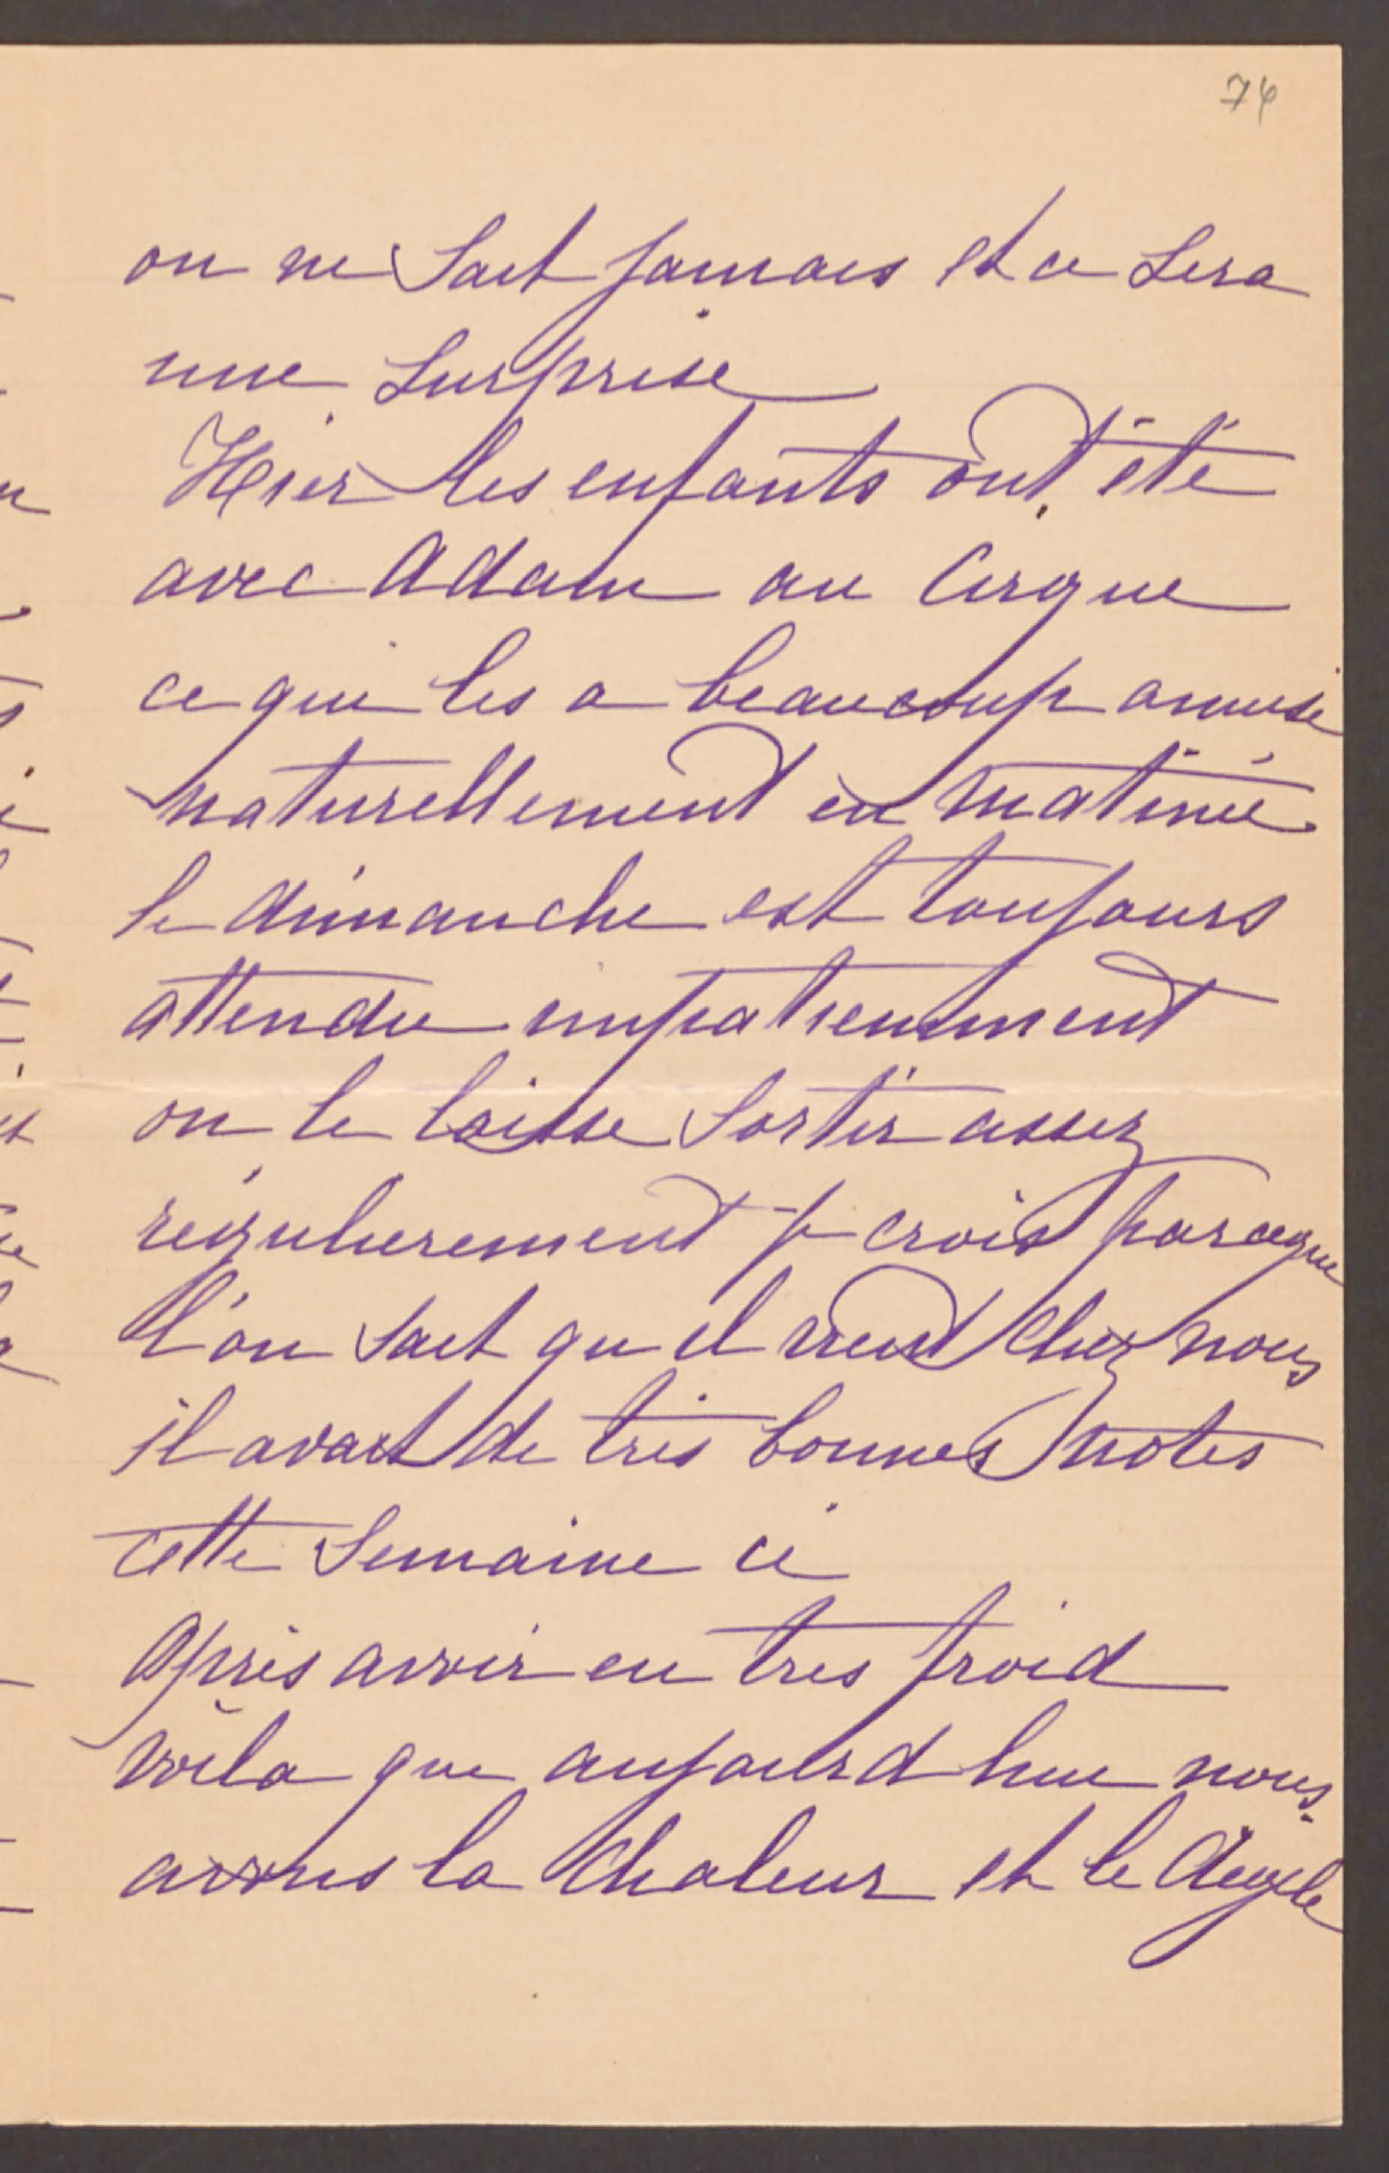 74
on ne sait jamais et ce sera
une surprise
Hier les enfants ont été
avec Adam au Cirque
ce qui les a beaucoup amusé
naturellement en matinée
le dimanche est toujours
attendu impatiemment
on le laisse sortir assez
régulierement je crois parceque
l'on sait qu il vient chez nous
il avait de très bonnes notes
cette semaine ci
Après avoir eu tres froid
voila que aujourd hui nous
avons la chaleur et le dégele